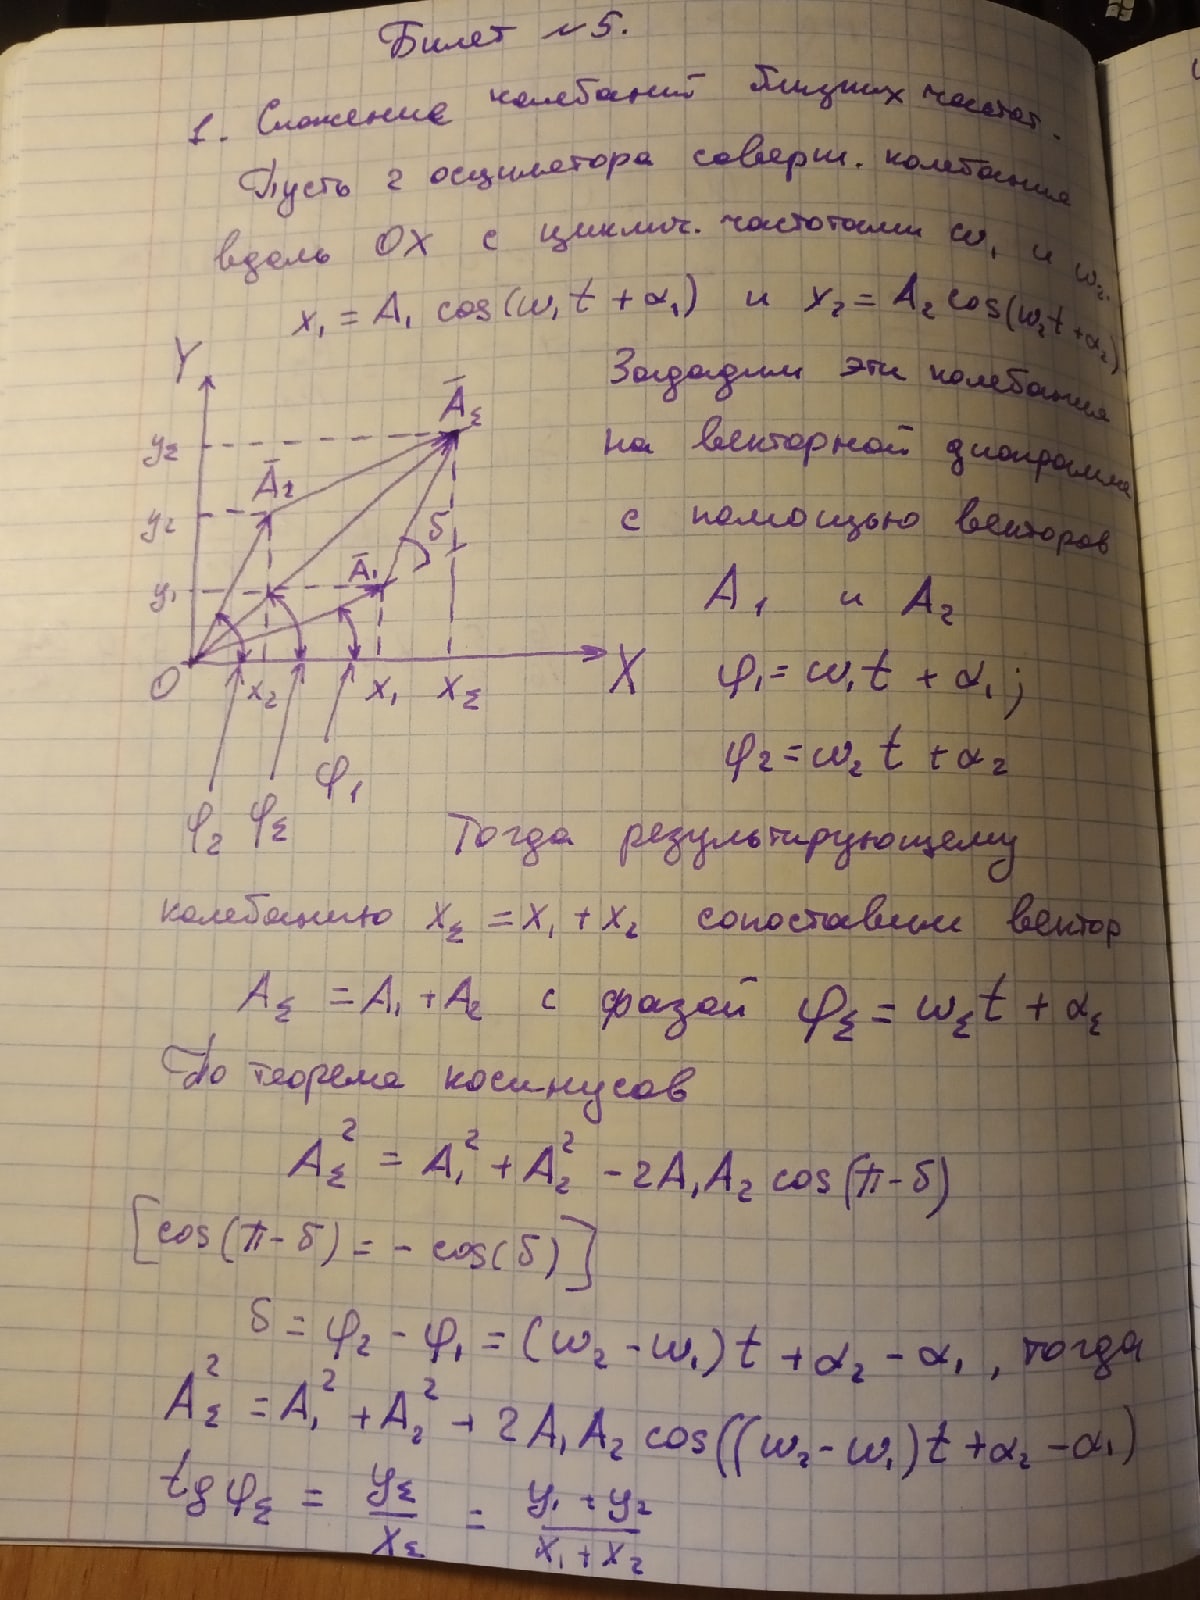 Билет № 5.
1. Сложение колебаний близких частот.
Пусть 2 осцилятора соверш. колебания
вдоль OX с циклич. частотами ω₁ и ω₂.
x₁ = A₁ cos(ω₁t + α₁) и x₂ = A₂ cos(ω₂t + α₂)
Зададим эти колебания
на векторной диаграмме
с помощью векторов
A₁ и A₂
φ₁ = ω₁t + α₁;
φ₂ = ω₂t + α₂
Y
A̅_Σ
y₂
A̅₂
y₂
δ
A̅₁
y₁
O x₂ x₁ x_Σ X
φ₁
φ₂ φ_Σ
Тогда результирующему
колебанию x_Σ = x₁ + x₂ сопоставим вектор
A_Σ = A₁ + A₂ с фазой φ_Σ = ω_Σt + α_Σ
По теорема косинусов
A_Σ² = A₁² + A₂² - 2A₁A₂ cos(π - δ)
[cos(π - δ) = - cos(δ)]
δ = φ₂ - φ₁ = (ω₂ - ω₁)t + α₂ - α₁, тогда
A_Σ² = A₁² + A₂² + 2A₁A₂ cos((ω₂ - ω₁)t + α₂ - α₁)
tg φ_Σ = y_Σ/x_Σ = (y₁ + y₂)/(x₁ + x₂)